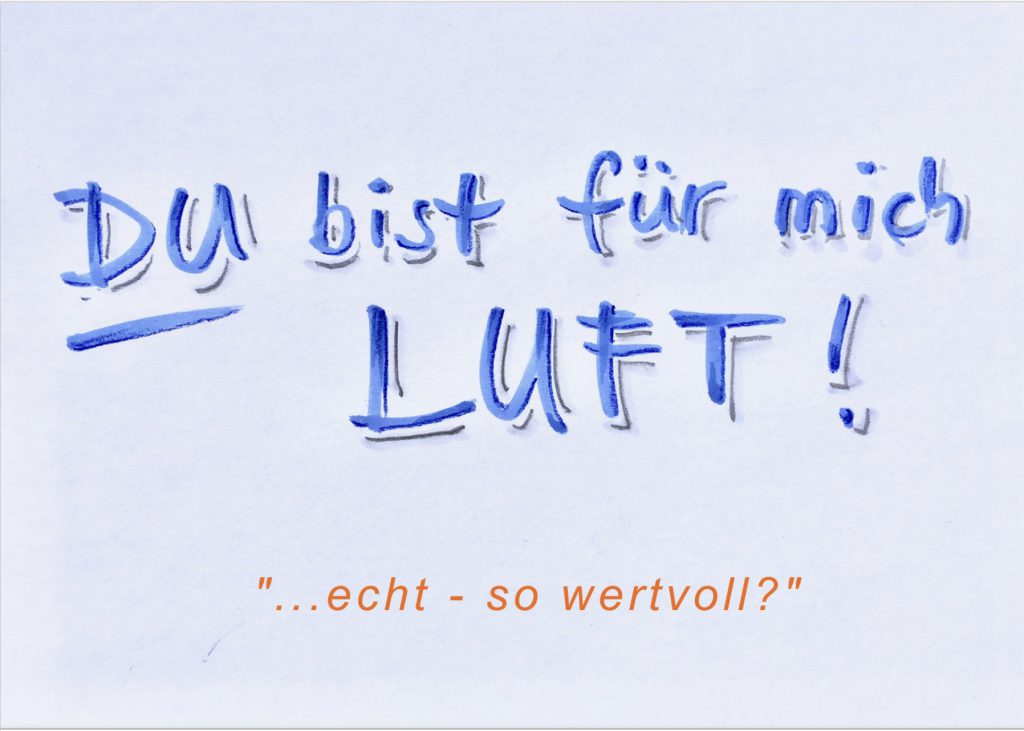 DU bist für mich
LUFT!
"...echt - so wertvoll?"